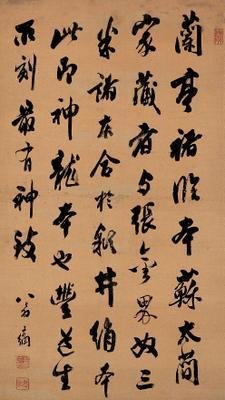 蘭亭褚臨本蘇太簡
家藏者与張金界奴三
米諸本合於穎井綃本
此即神龍本也豐道生
所刻最有神致